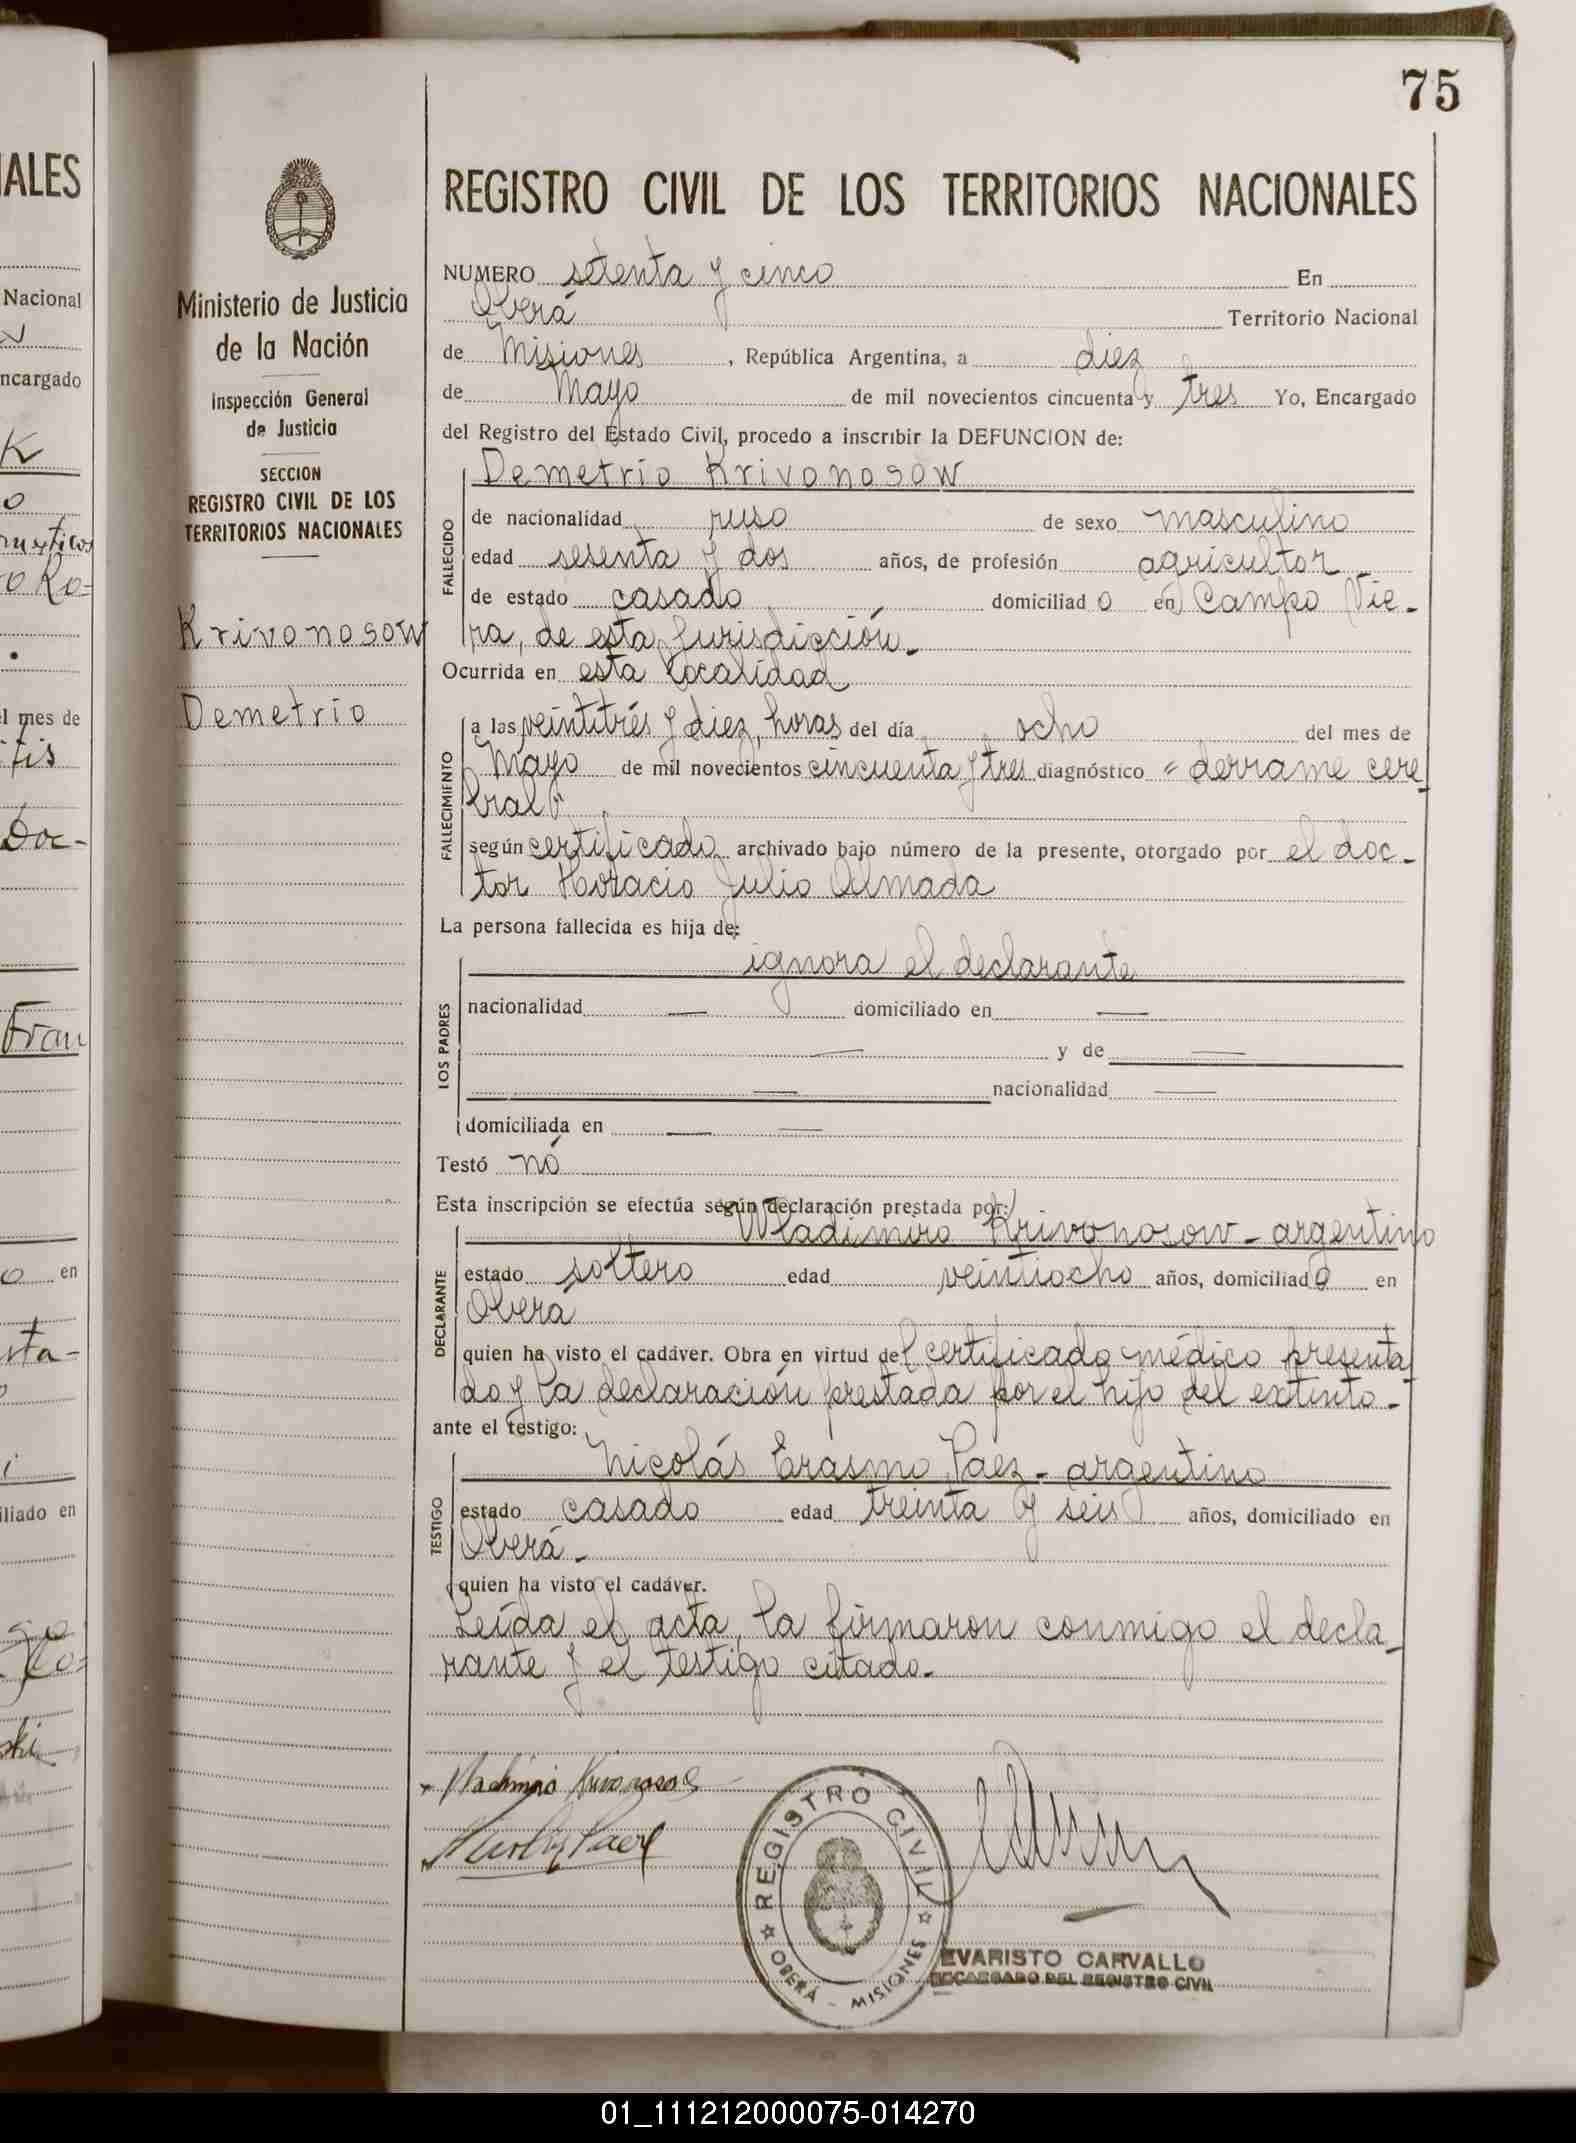 75
REGISTRO CIVIL DE LOS TERRITORIOS NACIONALES
Ministerio de Justicia
de la Nación
Inspección General
de Justicia
SECCION
REGISTRO CIVIL DE LOS
TERRITORIOS NACIONALES
Krivonosow
Demetrio
NUMERO setenta y cinco En
Oberá Territorio Nacional
de Misiones, República Argentina, a diez
de Mayo de mil novecientos cincuenta y tres Yo, Encargado
del Registro del Estado Civil, procedo a inscribir la DEFUNCION de:
Demetrio Krivonosow
FALLECIDO
de nacionalidad ruso de sexo masculino
edad sesenta y dos años, de profesión agricultor
de estado casado domiciliado en Campo Vie-
ra, de esta Jurisdicción.-
Ocurrida en esta localidad
FALLECIMIENTO
a las veintitrés y diez, horas del día ocho del mes de
Mayo de mil novecientos cincuenta y tres diagnóstico "derrame cere-
bral"
según certificado archivado bajo número de la presente, otorgado por el doc-
tor Horacio Julio Almada
La persona fallecida es hija de:
ignora el declarante
LOS PADRES
nacionalidad — domiciliado en —
— y de —
— nacionalidad —
domiciliada en — —
Testó nó
Esta inscripción se efectúa según declaración prestada por:
Wladimiro Krivonosow - argentino
DECLARANTE
estado soltero edad veintiocho años, domiciliado en
Obera
quien ha visto el cadáver. Obra en virtud del certificado médico presenta
do y la declaración prestada por el hijo del extinto.-
ante el testigo:
Nicolás Erasmo Paez - argentino
TESTIGO
estado casado edad treinta y seis años, domiciliado en
Oberá.-
quien ha visto el cadáver.
Leída el acta, la firmaron conmigo el decla-
rante y el testigo citado.-
REGISTRO CIVIL
OBERÁ - MISIONES
EVARISTO CARVALLO
ENCARGADO DEL REGISTRO CIVIL
01_111212000075-014270